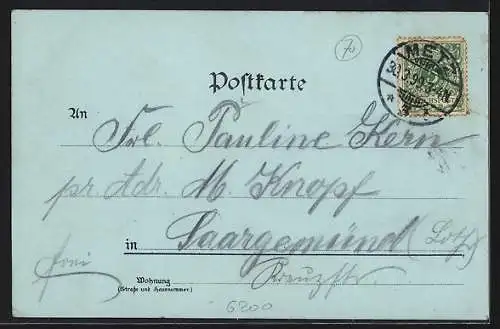 70
METZ
Postkarte
An Frl. Pauline Kern
pr Adr. M. Knopf
in Saargemünd (Lothr.)
frei
Kreuzstr.
Wohnung
(Straße und Hausnummer)
6200